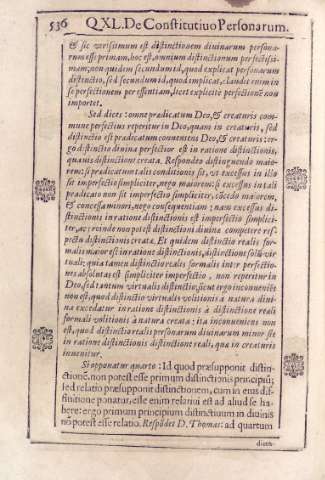 536 Q.XL. De Constitutiuo Personarum.
& sic verissimum est distinctionem diuinarum persona-
rum esse primam, hoc est, omnium distinctionum perfectissi-
mam, non quidem secundum id, quod explicat personarum
distinctio, sed secundum id, quod implicat, claudit enim in
se perfectionem per essentiam, licet explicite perfectionē non
importet.
Sed dices: omne prædicatum Deo, & creaturis com-
mune perfectius reperitur in Deo, quam in creaturis, sed
distinctio est prædicatum conueniens Deo, & creaturis: er-
go distinctio diuina perfectior est in ratione distinctionis,
quauis distinctione creata. Respondeo distinguendo maio-
rem: si prædicatum talis conditionis sit, vt excessus in illo
sit imperfectio simpliciter, nego maiorem: si excessus in tali
prædicato non sit imperfectio simpliciter, cōcedo maiorem,
& concessa minori, nego consequentiam: nam excessus di-
stinctionis in ratione distinctionis est imperfectio simplici-
ter, ac proinde non potest distinctioni diuinæ competere res-
pectu distinctionis creatæ. Et quidem distinctio realis for-
malis maior est in ratione distinctionis, distinctione solū vir-
tuali; quia tamen distinctio realis formalis inter perfectio-
nes absolutas est simpliciter imperfectio, non reperitur in
Deo, sed tantum virtualis distinctio, sicut ergo inconueniēs
non est, quod distinctio virtualis volitionis à natura diui-
na excedatur in ratione distinctionis à distinctione reali
formali volitionis à natura creata: ita inconueniens non
est, quod distinctio realis personarum diuinarum minor sit
in ratione distinctionis distinctione reali, quæ in creaturis
inuenitur.
Si opponatur quarto: Id quod præsupponit distin-
ctionē, non potest esse primum distinctionis principiū;
sed relatio præsupponit distinctionem, cum in eius dif-
finitione ponatur, esse enim relatiui est ad aliud se ha-
bere: ergo primum principium distinctiuum in diuinis
nō potest esse relatio. Respōdet D. Thomas: ad quartum
dicen-